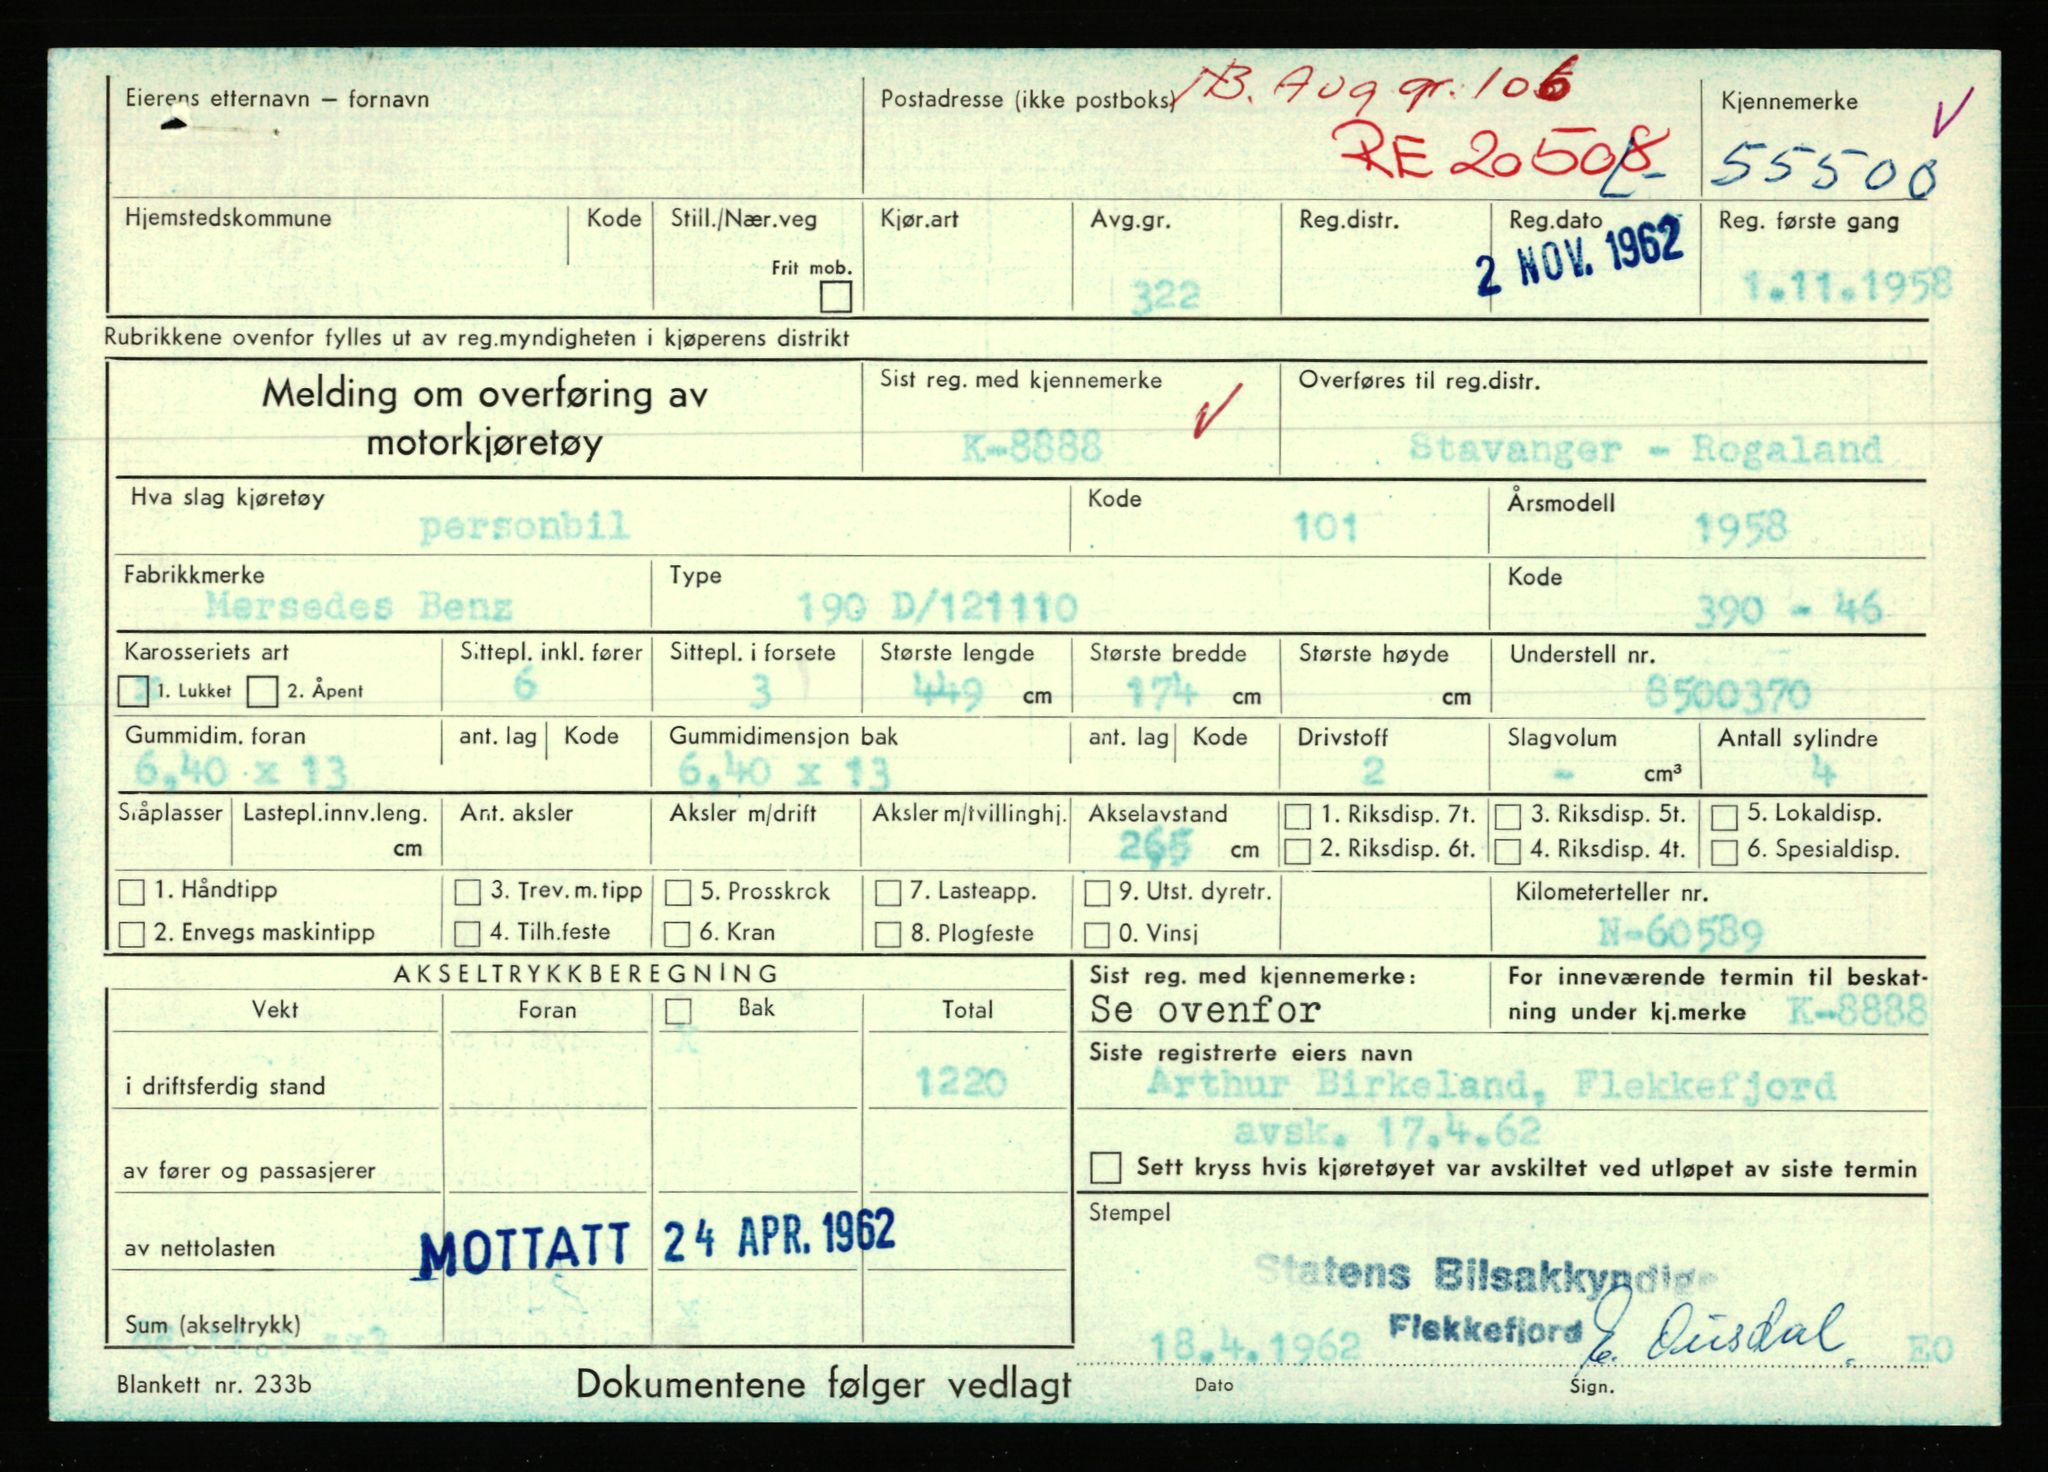 NB. Avg gr. 106
Eierens etternavn – fornavn Postadresse (ikke postboks) Kjennemerke
RE 20508
L- 55500
Hjemstedskommune Kode Still./Nær.veg Kjør.art Avg.gr. Reg.distr. Reg.dato Reg. første gang
Frit mob. 322 2 NOV. 1962 1.11.1958
Rubrikkene ovenfor fylles ut av reg.myndigheten i kjøperens distrikt
Melding om overføring av motorkjøretøy
Sist reg. med kjennemerke Overføres til reg.distr.
K-8888 Stavanger - Rogaland
Hva slag kjøretøy Kode Årsmodell
personbil 101 1958
Fabrikkmerke Type Kode
Mersedes Benz 190 D/121110 390 - 46
Karosseriets art Sittepl. inkl. fører Sittepl. i forsete Største lengde Største bredde Største høyde Understell nr.
x 1. Lukket 2. Åpent 6 3 449 cm 174 cm cm 8500370
Gummidim. foran ant. lag Kode Gummidimensjon bak ant. lag Kode Drivstoff Slagvolum Antall sylindre
6,40 x 13 6,40 x 13 2 - cm³ 4
Ståplasser Lastepl.innv.leng. Ant. aksler Aksler m/drift Aksler m/tvillinghj. Akselavstand 1. Riksdisp. 7t. 3. Riksdisp. 5t. 5. Lokaldisp.
cm 265 cm 2. Riksdisp. 6t. 4. Riksdisp. 4t. 6. Spesialdisp.
1. Håndtipp 3. Trev. m. tipp 5. Prosskrok 7. Lasteapp. 9. Utst. dyretr. Kilometerteller nr.
2. Envegs maskintipp 4. Tilh.feste 6. Kran 8. Plogfeste 0. Vinsj N-60589
AKSELTRYKKBEREGNING Sist reg. med kjennemerke: For inneværende termin til beskat-
Vekt Foran Bak Total Se ovenfor ning under kj.merke K-8888
Siste registrerte eiers navn
i driftsferdig stand 1220 Arthur Birkeland, Flekkefjord
avsk. 17.4.62
av fører og passasjerer Sett kryss hvis kjøretøyet var avskiltet ved utløpet av siste termin
Stempel
av nettolasten MOTTATT 24 APR. 1962
Statens Bilsakkyndige
Sum (akseltrykk) 18.4.1962 Flekkefjord E. Ousdal EO
Blankett nr. 233b Dokumentene følger vedlagt Dato Sign.